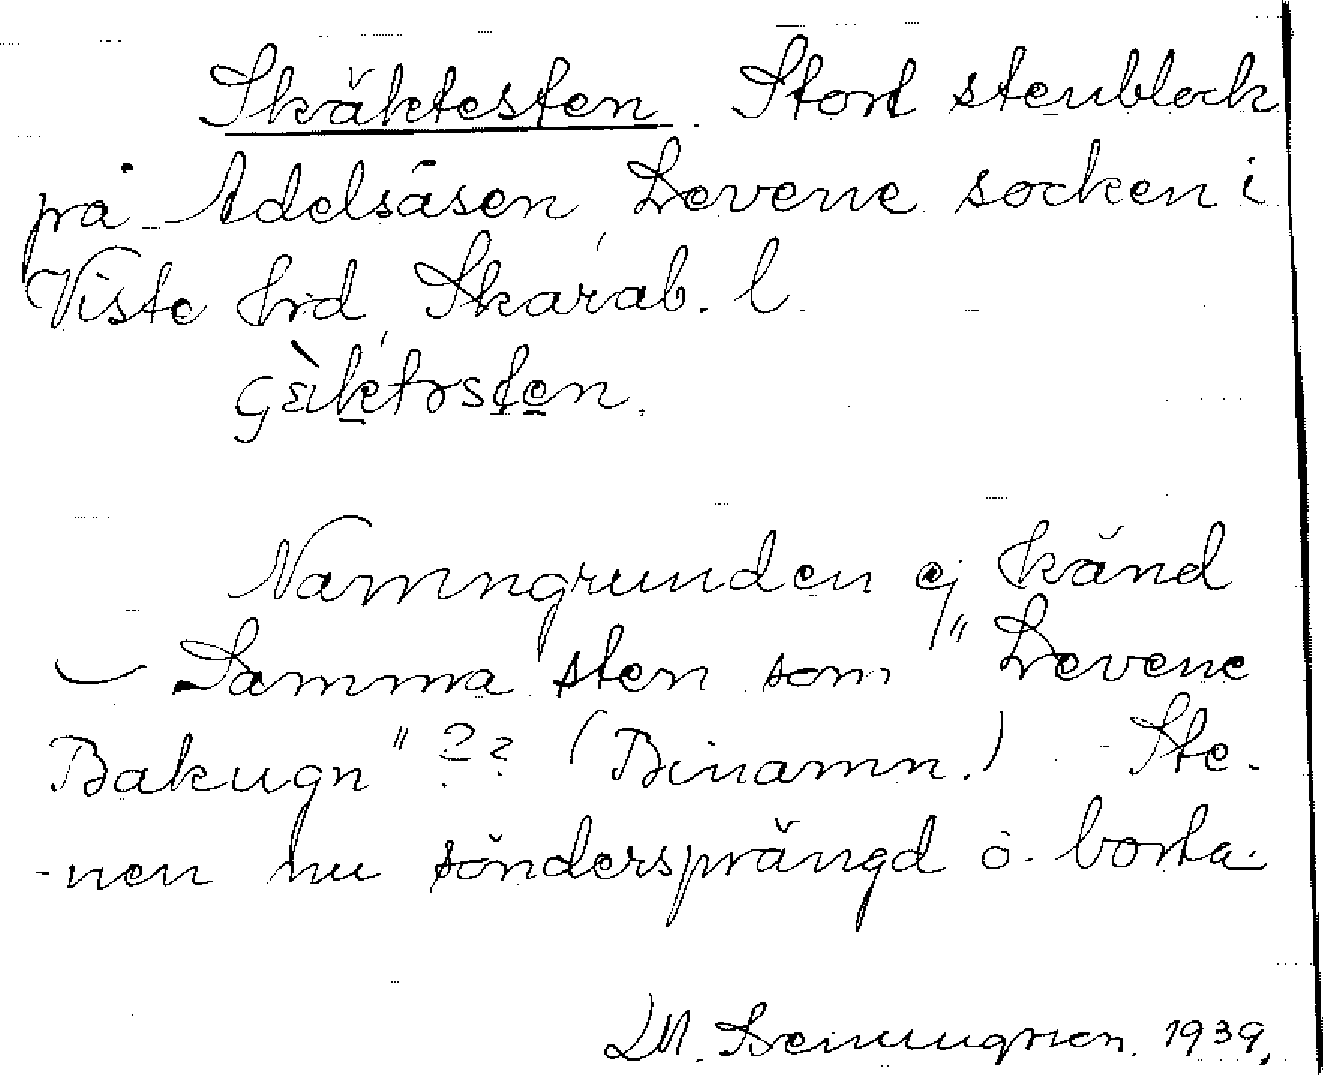 Skräktesten. Stort stenblock
på Adelsåsen, Levene socken i
Viste hrd, Skarab. l.
Namngrunden ej känd
– Samma sten som "Levene
Bakugn" ?? (Binamn.) Ste-
-nen nu söndersprängd o. borta.
1939.